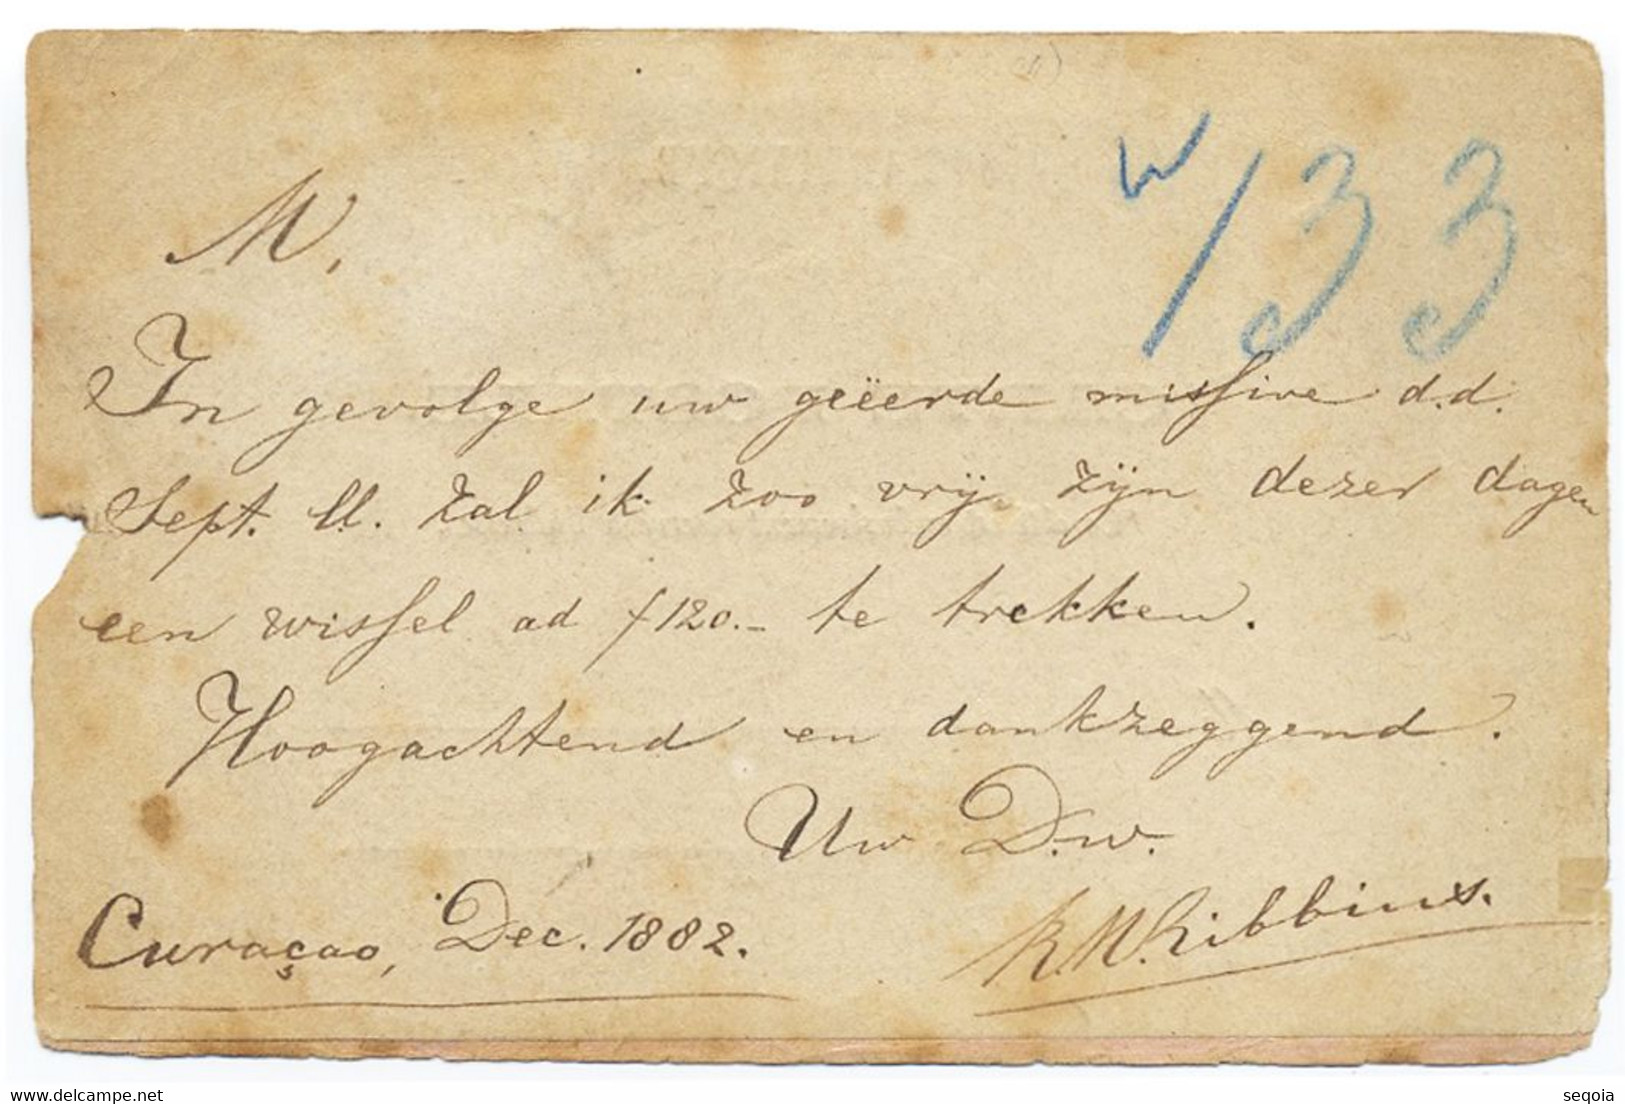 W 133
M,
In gevolge uw geëerde missive d.d.
Sept. ll. zal ik zoo vrij zijn dezer dagen
een wissel ad f 120.- te trekken.
Hoogachtend en dankzeggend.
Uw D.w.
Curaçao, Dec. 1882.
delcampe.net
seqoia